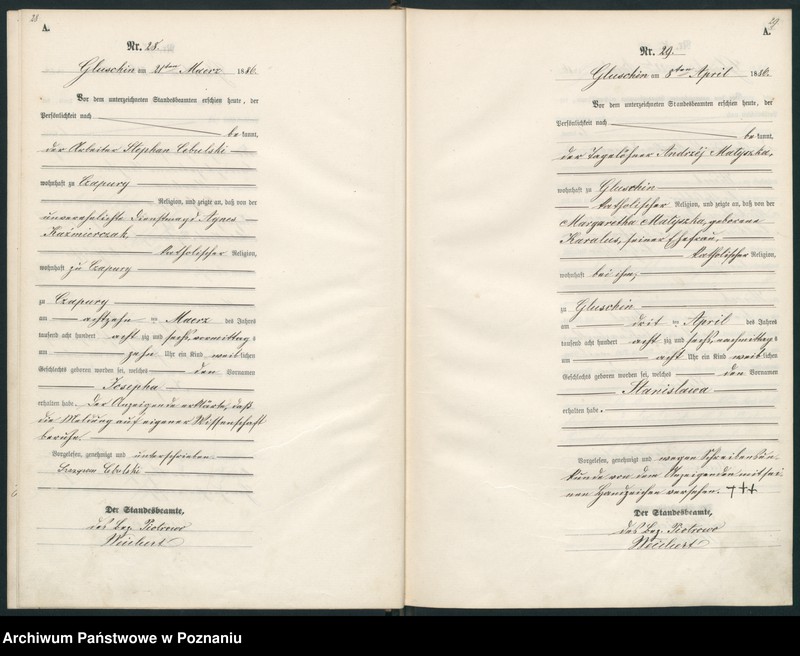 28
A.
Nr. 28.
Gluschin am 21ten Maerz 1886.
Vor dem unterzeichneten Standesbeamten erschien heute, der
Persönlichkeit nach
bekannt,
der Arbeiter Stephan Cebulski
wohnhaft zu Czapury
Religion, und zeigte an, daß von der
unverehelichte Dienstmagd Agnes
Kazmierczak,
katholischer Religion,
wohnhaft zu Czapury
zu Czapury
am achtzehn ten Maerz des Jahres
tausend acht hundert acht zig und sechs vormittags
um zehn Uhr ein Kind weiblichen
Geschlechts geboren worden sei, welches den Vornamen
Josepha
erhalten habe. Der Anzeigende erklärte, daß
die Meldung auf eigener Wissenschaft
beruhe.
Vorgelesen, genehmigt und unterschrieben
Cebulski
Der Standesbeamte,
des Bez. Piotrowo
Weichert
29
A.
Nr. 29.
Gluschin am 8ten April 1886.
Vor dem unterzeichneten Standesbeamten erschien heute, der
Persönlichkeit nach
bekannt,
der Tagelöhner Andrzéj Matyszka,
wohnhaft zu Gluschin
katholischer Religion, und zeigte an, daß von der
Margaretha Matyszka, geborene
Karalus, seiner Ehefrau,
katholischer Religion,
wohnhaft bei ihm,
zu Gluschin
am drit ten April des Jahres
tausend acht hundert acht zig und sechs nachmittags
um acht Uhr ein Kind weiblichen
Geschlechts geboren worden sei, welches den Vornamen
Stanislawa
erhalten habe.
Vorgelesen, genehmigt und wegen Schreibensun
kunde von dem Anzeigenden mit sei
nen Handzeichen versehen. +++
Der Standesbeamte,
des Bez. Piotrowo
Weichert
Archiwum Państwowe w Poznaniu